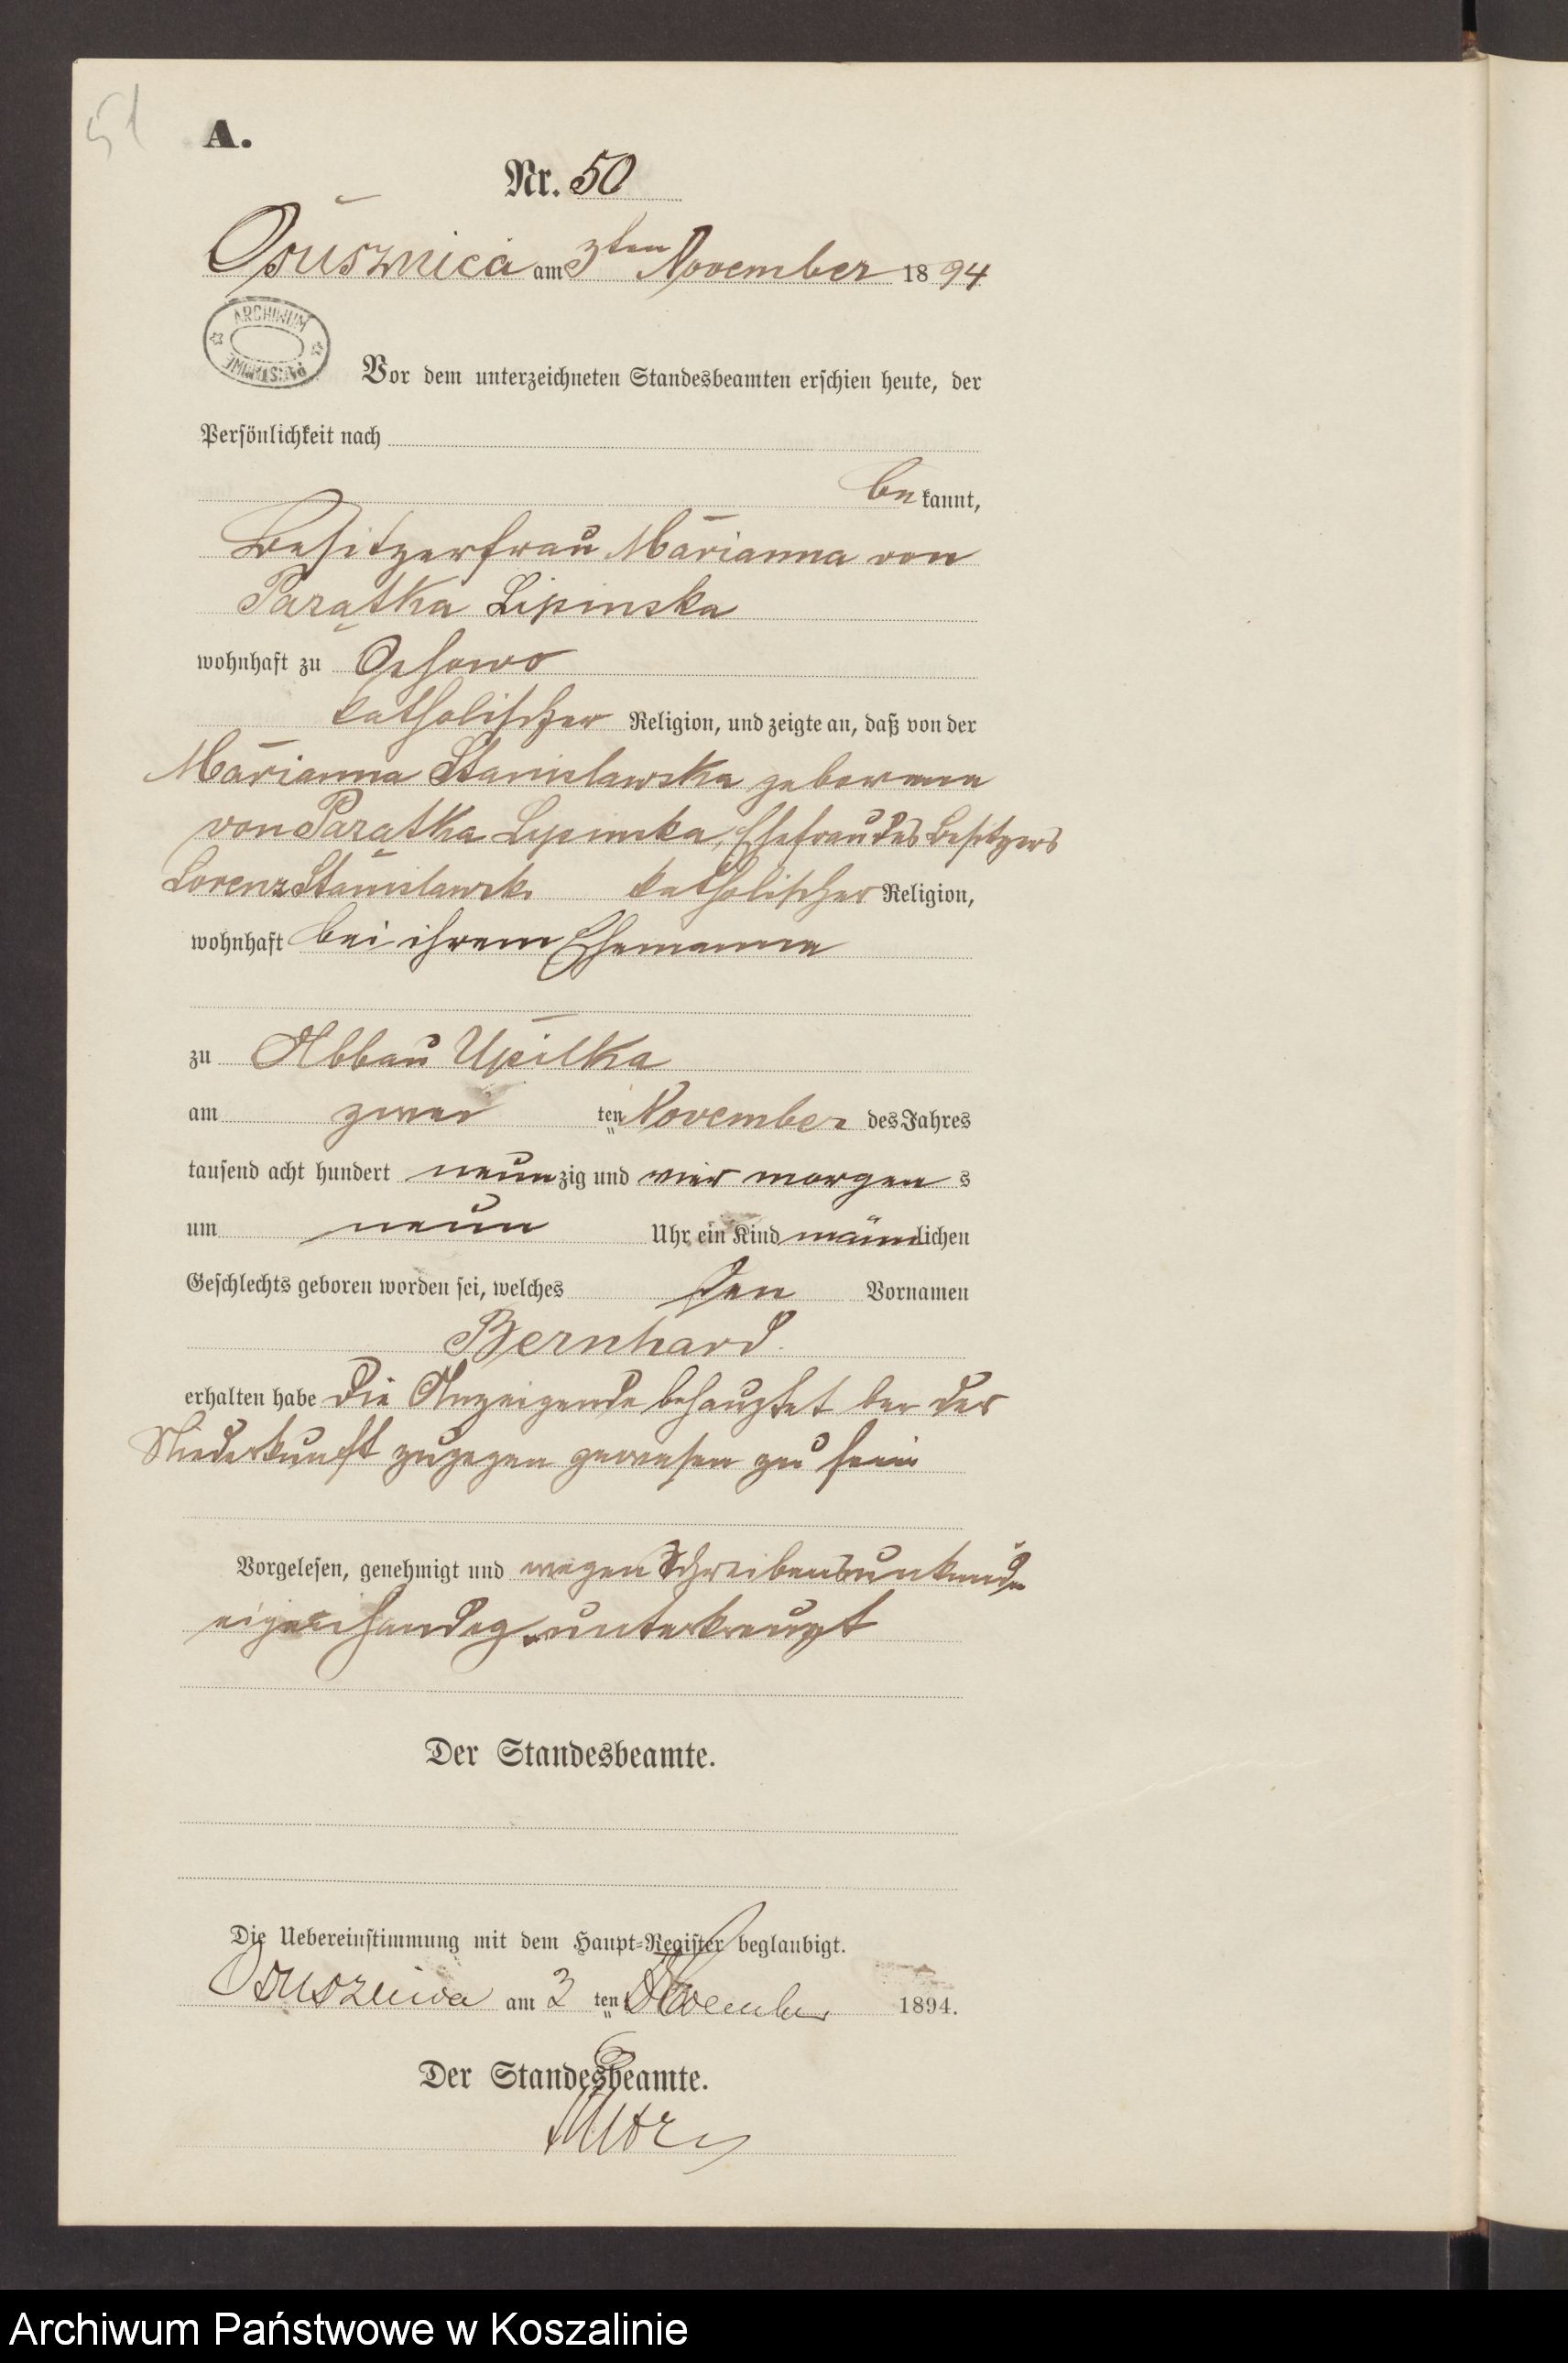 51
A.
Nr. 50
Osusznica am 3ten November 1894
ARCHIWUM PAŃSTWOWE
Vor dem unterzeichneten Standesbeamten erschien heute, der
Persönlichkeit nach
bekannt,
Besitzerfrau Marianna von
Parątka Lipinska
wohnhaft zu
katholischer Religion, und zeigte an, daß von der
Marianna Stanislawska geborenen
von Parątka Lipinska, Ehefrau des Besitzers
Lorenz Stanislawski katholischer Religion,
wohnhaft bei ihrem Ehemanne
zu Abbau Upilka
am zwei ten November des Jahres
tausend acht hundert neunzig und vier morgens
um neun Uhr ein Kind männlichen
Geschlechts geboren worden sei, welches den Vornamen
Bernhard.
erhalten habe Die Anzeigende behauptet bei der
Niederkunft zugegen gewesen zu sein
Vorgelesen, genehmigt und wegen Schreibensunkunde
eigenhändig unterkreuzt
Der Standesbeamte.
Die Uebereinstimmung mit dem Haupt-Register beglaubigt.
Osusznica am 3 ten November 1894.
Der Standesbeamte.
Archiwum Państwowe w Koszalinie